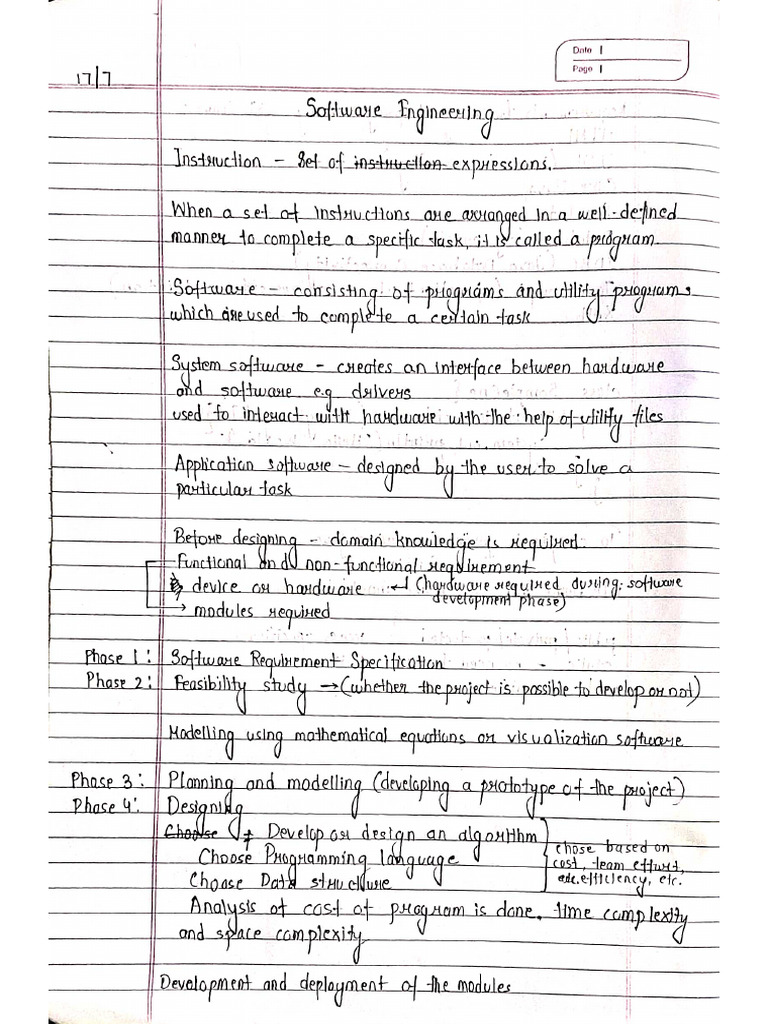 Date |
Page |
17/7
Software Engineering
Instruction - Set of instruction expressions.
When a set of instructions are arranged in a well-defined
manner to complete a specific task, it is called a program.
Software - consisting of programs and utility programs
which are used to complete a certain task
System software - creates an interface between hardware
and software e.g. drivers
used to interact with hardware with the help of utility files
Application software - designed by the user to solve a
particular task
Before designing - domain knowledge is required.
Functional and non-functional requirement
device or hardware ↲ (hardware required during software
development phase)
→ modules required
Phase 1: Software Requirement Specification
Phase 2: Feasibility study → (whether the project is possible to develop or not)
Modelling using mathematical equations or visualization software
Phase 3: Planning and modelling (developing a prototype of the project)
Phase 4: Designing
Choose Develop or design an algorithm
Choose Programming language
Choose Data structure
chose based on
cost, team effort,
efficiency, etc.
Analysis of cost of program is done. time complexity
and space complexity
Development and deployment of the modules